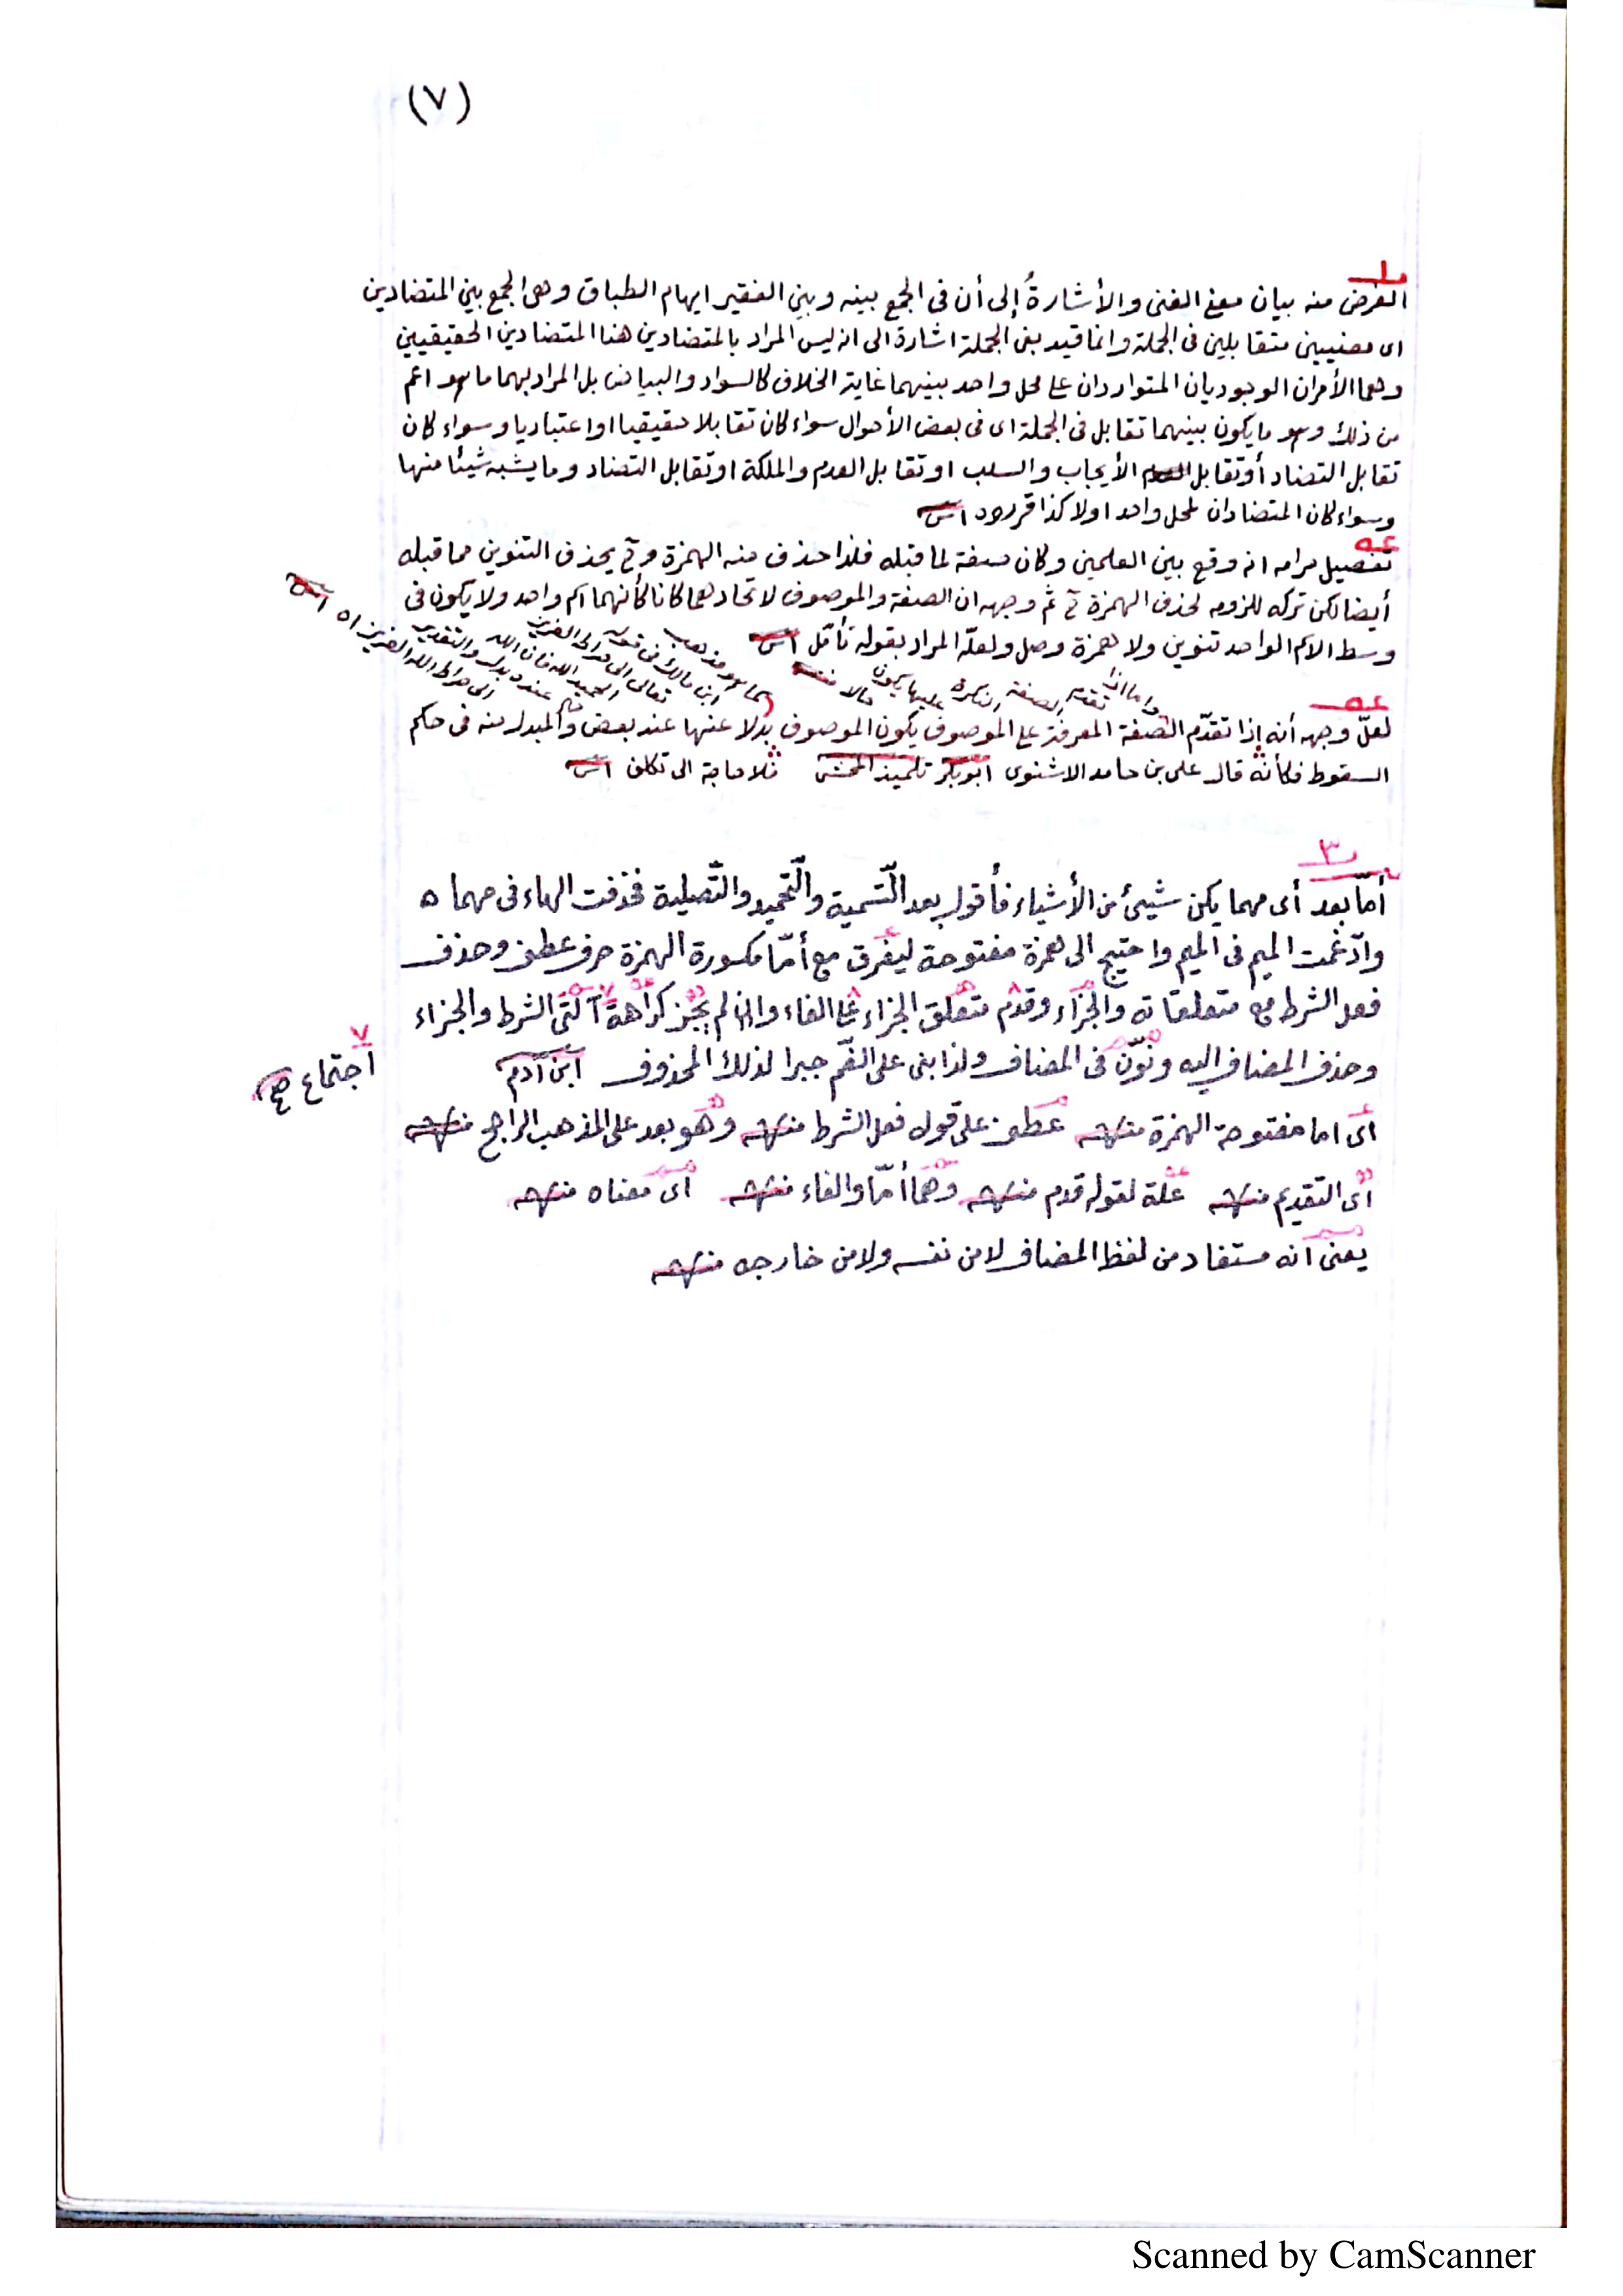 (٧)
١
الغرض منه بيان معنى الغنى والأشارةُ إلى أن فى الجمع بينه وبين الفقير ايهام الطباق وهى الجمع بين المتضادين
اى معنيين متقابلين فى الجملة وانما قيد بفى الجملة اشارة الى انه ليس المراد بالمتضادين هنا المتضادين الحقيقيين
وهما الأمران الوجوديان المتواردان على محل واحد بينهما غاية الخلاف كالسواد والبياض بل المراد بهما ما هو اعم
من ذلك وهو ما يكون بينهما تقابل فى الجملة اى فى بعض الأحوال سواء كان تقابلا حقيقيا او اعتباريا وسواء كان
تقابل التضاد أو تقابل الأيجاب والسلب او تقابل العدم والملكة او تقابل التضاد وما يشبه شيئا منها
وسواء كان المتضادان لمحل واحد اولا كذا قرروه
عه
تفصيل مرامه انه وقع بين العلمين وكان صفة لما قبله فلذا حذف منه الهمزة وح يحذف التنوين مما قبله
أيضا لكن تركه للزومه لحذف الهمزة ح ثم وجهه ان الصفة والموصوف لاتحادهما كانا كأنهما اسم واحد ولا يكون فى
وسط الاسم الواحد تنوين ولا همزة وصل ولعلّه المراد بقوله تأمّل
واما اذا تقدم الصفة النكرة عليها يكون حالا منه
كما هو مذهب
ابن مالك فى قوله
تعالى الى صراط العزيز
الحميد الله فان الله
عنده بدل والتقدير
الى صراط الله العزيز اه
عه
لعلّ وجهه أنه إذا تقدّم الصفة المعرفة على الموصوف يكون الموصوف بدلا عنها عند بعض والمبدل منه فى حكم
السقوط فكأنّه قال على بن حامد الاشنوى ابوبكر تلميذ المحشى فلا حاجة الى تكلف
٣
أمّا بعد أى مهما يكن شيئ من الأشياء فأقول بعد التّسمية والتّحميد والتّصلية فحذفت الهاء فى مهما ه
وادّغمت الميم فى الميم واحتيج الى همزة مفتوحة ليفرق مع أمّا مكسورة الهمزة حرف عطف وحذف
فعل الشرط مع متعلقاته والجزاء وقدّم متعلق الجزاء على الفاء وان لم يجز كراهة آلتى الشرط والجزاء
٧
اجتماع صح
وحذف المضاف اليه ونوّن فى المضاف ولذا بنى على الضّم جبرا لذلك المحذوف ابن آدم
اى اما مفتوحة الهمزة منه عطف على قوله فعل الشرط منه وهو بعد على المذهب الراجح منه
اى التقديم منه علة لقوله قدم منه وهما أمّا والفاء منه اى معناه منه
يعنى انه مستفاد من لفظ المضاف لا من نفسه ولا من خارجه منه
Scanned by CamScanner